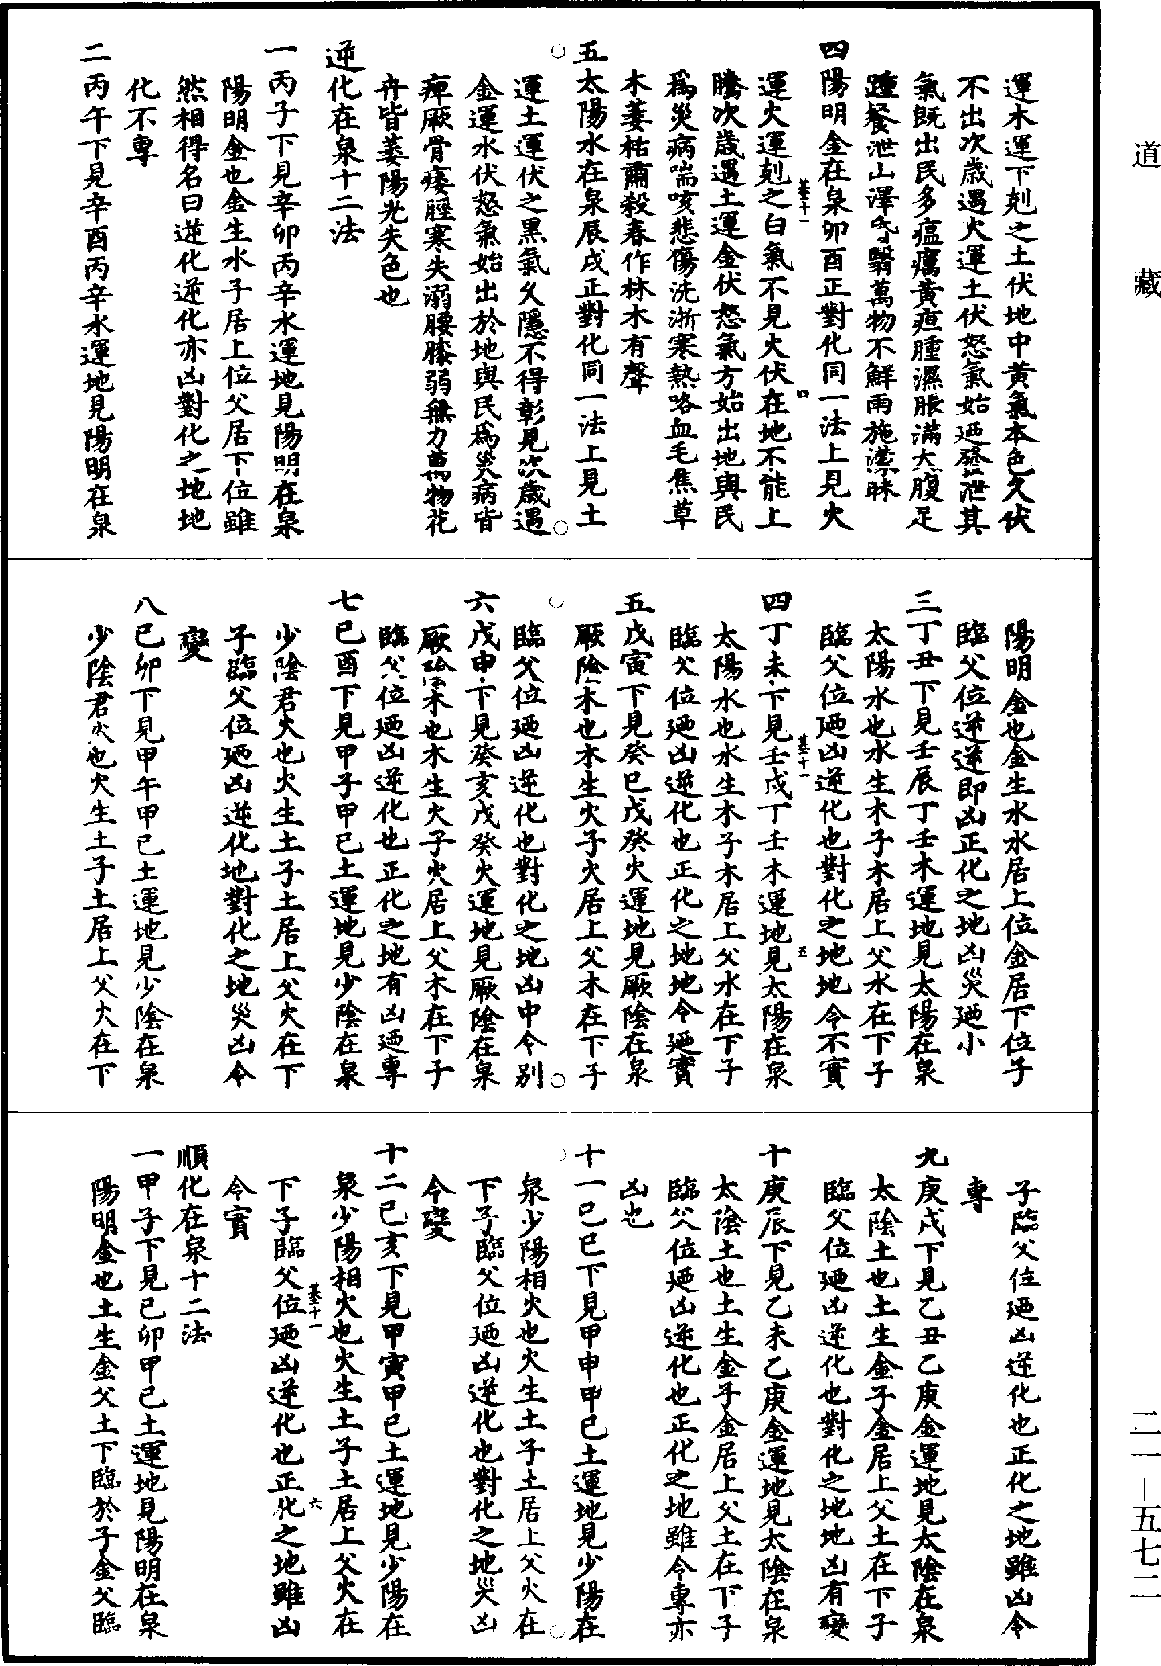 道藏
運木運下剋之土伏地中黃氣本色久伏
不出次歲遇火運土伏怒氣始迺發泄其
氣既出民多瘟癘黃疸腫濕脹滿大腹足
踵餐泄山澤昏翳萬物不鮮雨施濛昧
四陽明金在泉卯酉正對化同一法上見火
運火運剋之白氣不見火伏在地不能上
騰次歲遇土運金伏怒氣方始出地與民
為災病喘咳悲傷洗淅寒熱咯血毛焦草
木萎枯肅殺春作林木有聲
五太陽水在泉辰戌正對化同一法上見土
運土運伏之黑氣久隱不得彰見次歲遇
金運水伏怒氣始出於地與民為災病皆
痺厥骨痿脛寒失溺腰膝弱無力萬物花
卉皆萎陽光失色也
逆化在泉十二法
一丙子下見辛卯丙辛水運地見陽明在泉
陽明金也金生水子居上位父居下位雖
然相得名曰逆化逆化亦凶對化之地地
化不專
二丙午下見辛酉丙辛水運地見陽明在泉
陽明金也金生水水居上位金居下位子
臨父位逆逆即凶正化之地凶災迺小
三丁丑下見壬辰丁壬木運地見太陽在泉
太陽水也水生木子木居上父水在下子
臨父位迺凶逆化也對化之地地令不實
四丁未下見壬戌丁壬木運地見太陽在泉
太陽水也水生木子木居上父水在下子
臨父位迺凶逆化也正化之地地令迺實
五戊寅下見癸巳戊癸火運地見厥陰在泉
厥陰木也木生火子火居上父木在下子
臨父位迺凶逆化也對化之地凶中令別
六戊申下見癸亥戊癸火運地見厥陰在泉
厥陰木也木生火子火居上父木在下子
臨父位迺凶逆化也正化之地有凶迺專
七己酉下見甲子甲己土運地見少陰在泉
少陰君火也火生土子土居上父火在下
子臨父位迺凶逆化地對化之地災凶令
變
八己卯下見甲午甲己土運地見少陰在泉
少陰君火也火生土子土居上父火在下
子臨父位迺凶逆化也正化之地雖凶令
專
九庚戌下見乙丑乙庚金運地見太陰在泉
太陰土也土生金子金居上父土在下子
臨父位迺凶逆化也對化之地地凶有變
十庚辰下見乙未乙庚金運地見太陰在泉
太陰土也土生金子金居上父土在下子
臨父位迺凶逆化也正化之地雖令專亦
凶也
十一己巳下見甲申甲己土運地見少陽在
泉少陽相火也火生土子土居上父火在
下子臨父位迺凶逆化也對化之地災凶
令變
十二己亥下見甲寅甲己土運地見少陽在
泉少陽相火也火生土子土居上父火在
下子臨父位迺凶逆化也正化之地雖凶
令實
順化在泉十二法
一甲子下見己卯甲己土運地見陽明在泉
陽明金也土生金父土下臨於子金父臨
二一—五七二